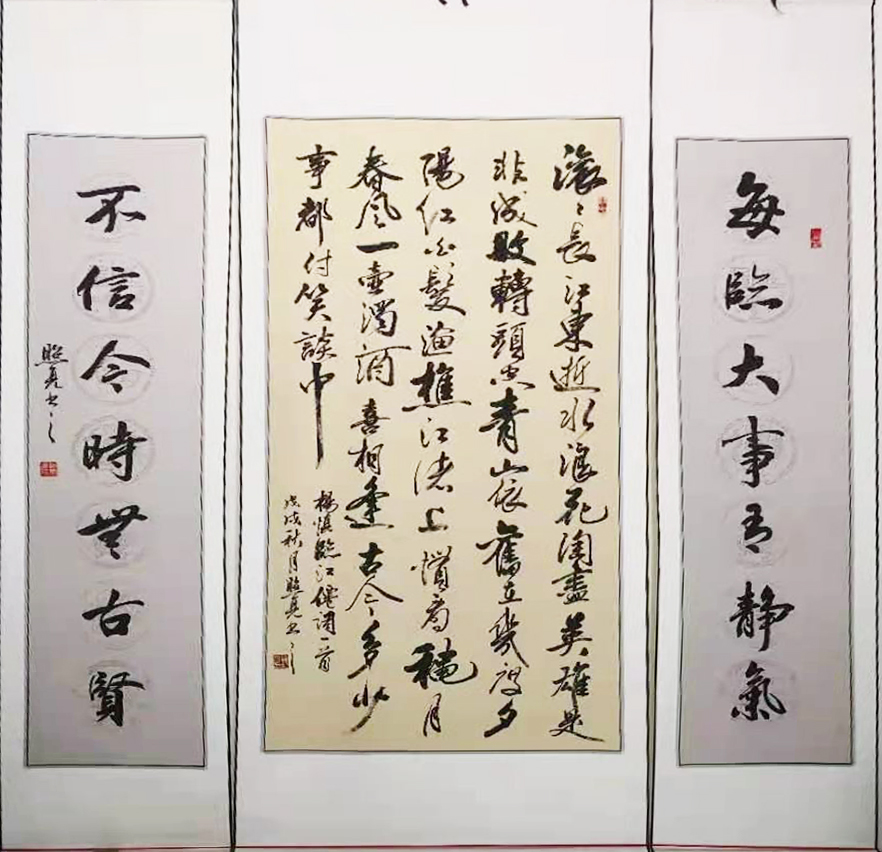 每臨大事有静氣
滚〻長江東逝水浪花淘盡英雄是
非成敗轉頭空青山依舊立幾度夕
陽红白髮漁樵江渚上慣看穐月
春风一壶濁酒喜相逢古今多少
事都付笑談中
楊慎臨江僊詞一首
戊戌秋月照亮书之
不信今時無古賢
照亮书之